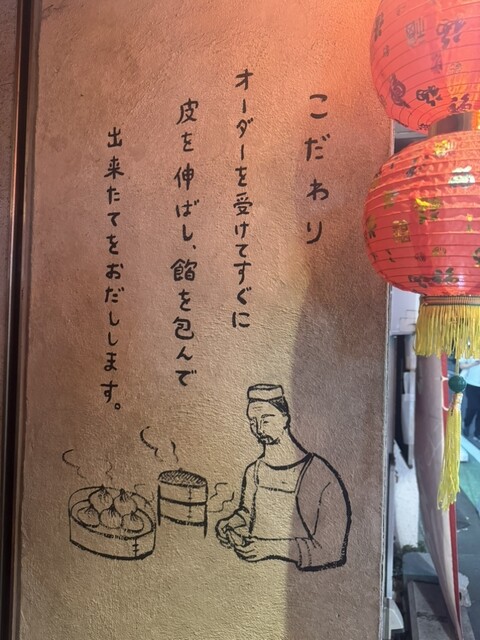 こだわり
オーダーを受けてすぐに
皮を伸ばし、餡を包んで
出来たてをおだしします。
福